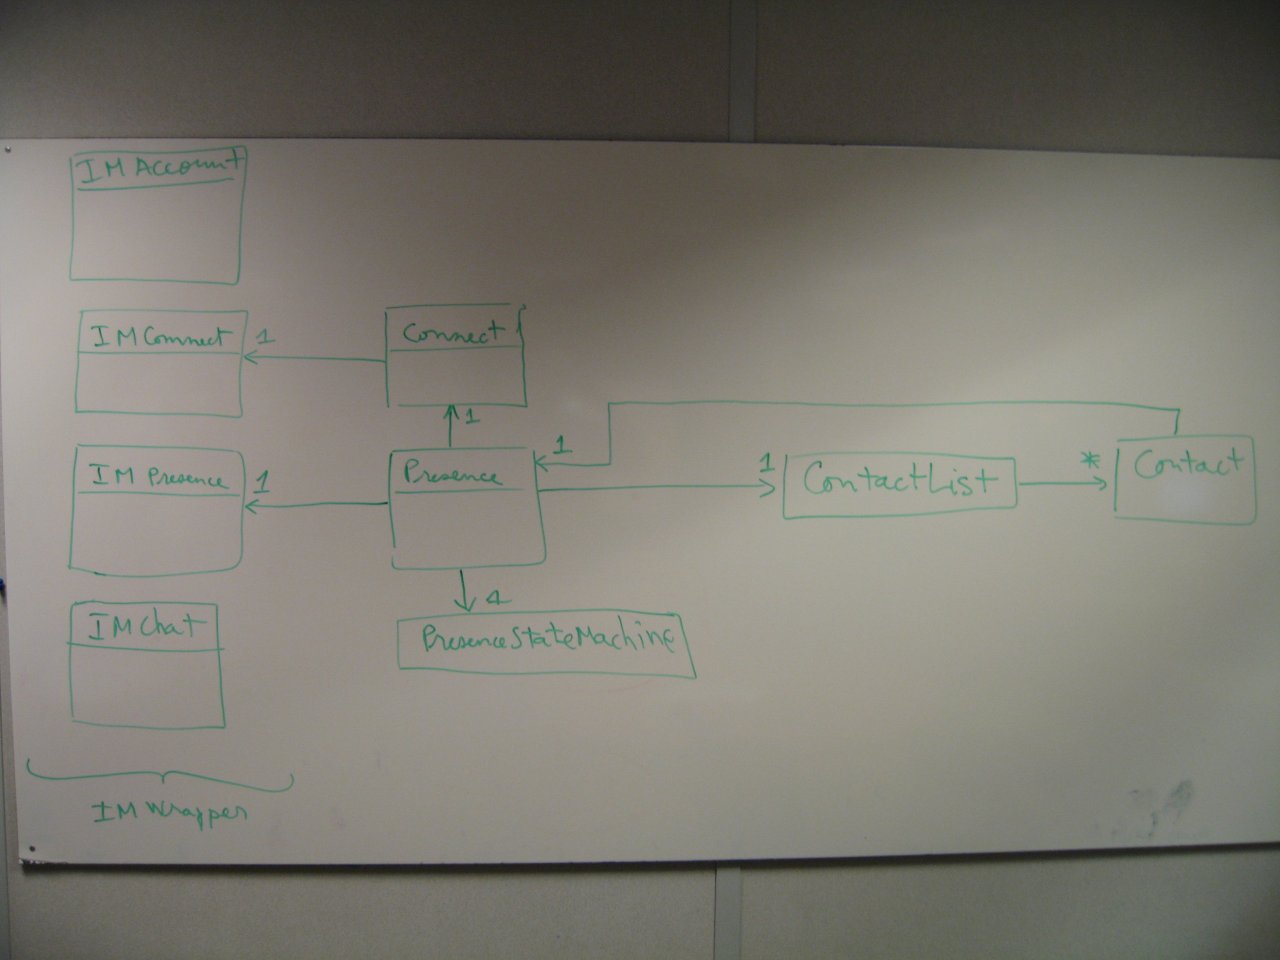 IMAccount
IMConnect
1
Connect
1
IM Presence
1
Presence
1
1
ContactList
*
Contact
1
PresenceStateMachine
IMChat
IM Wrapper